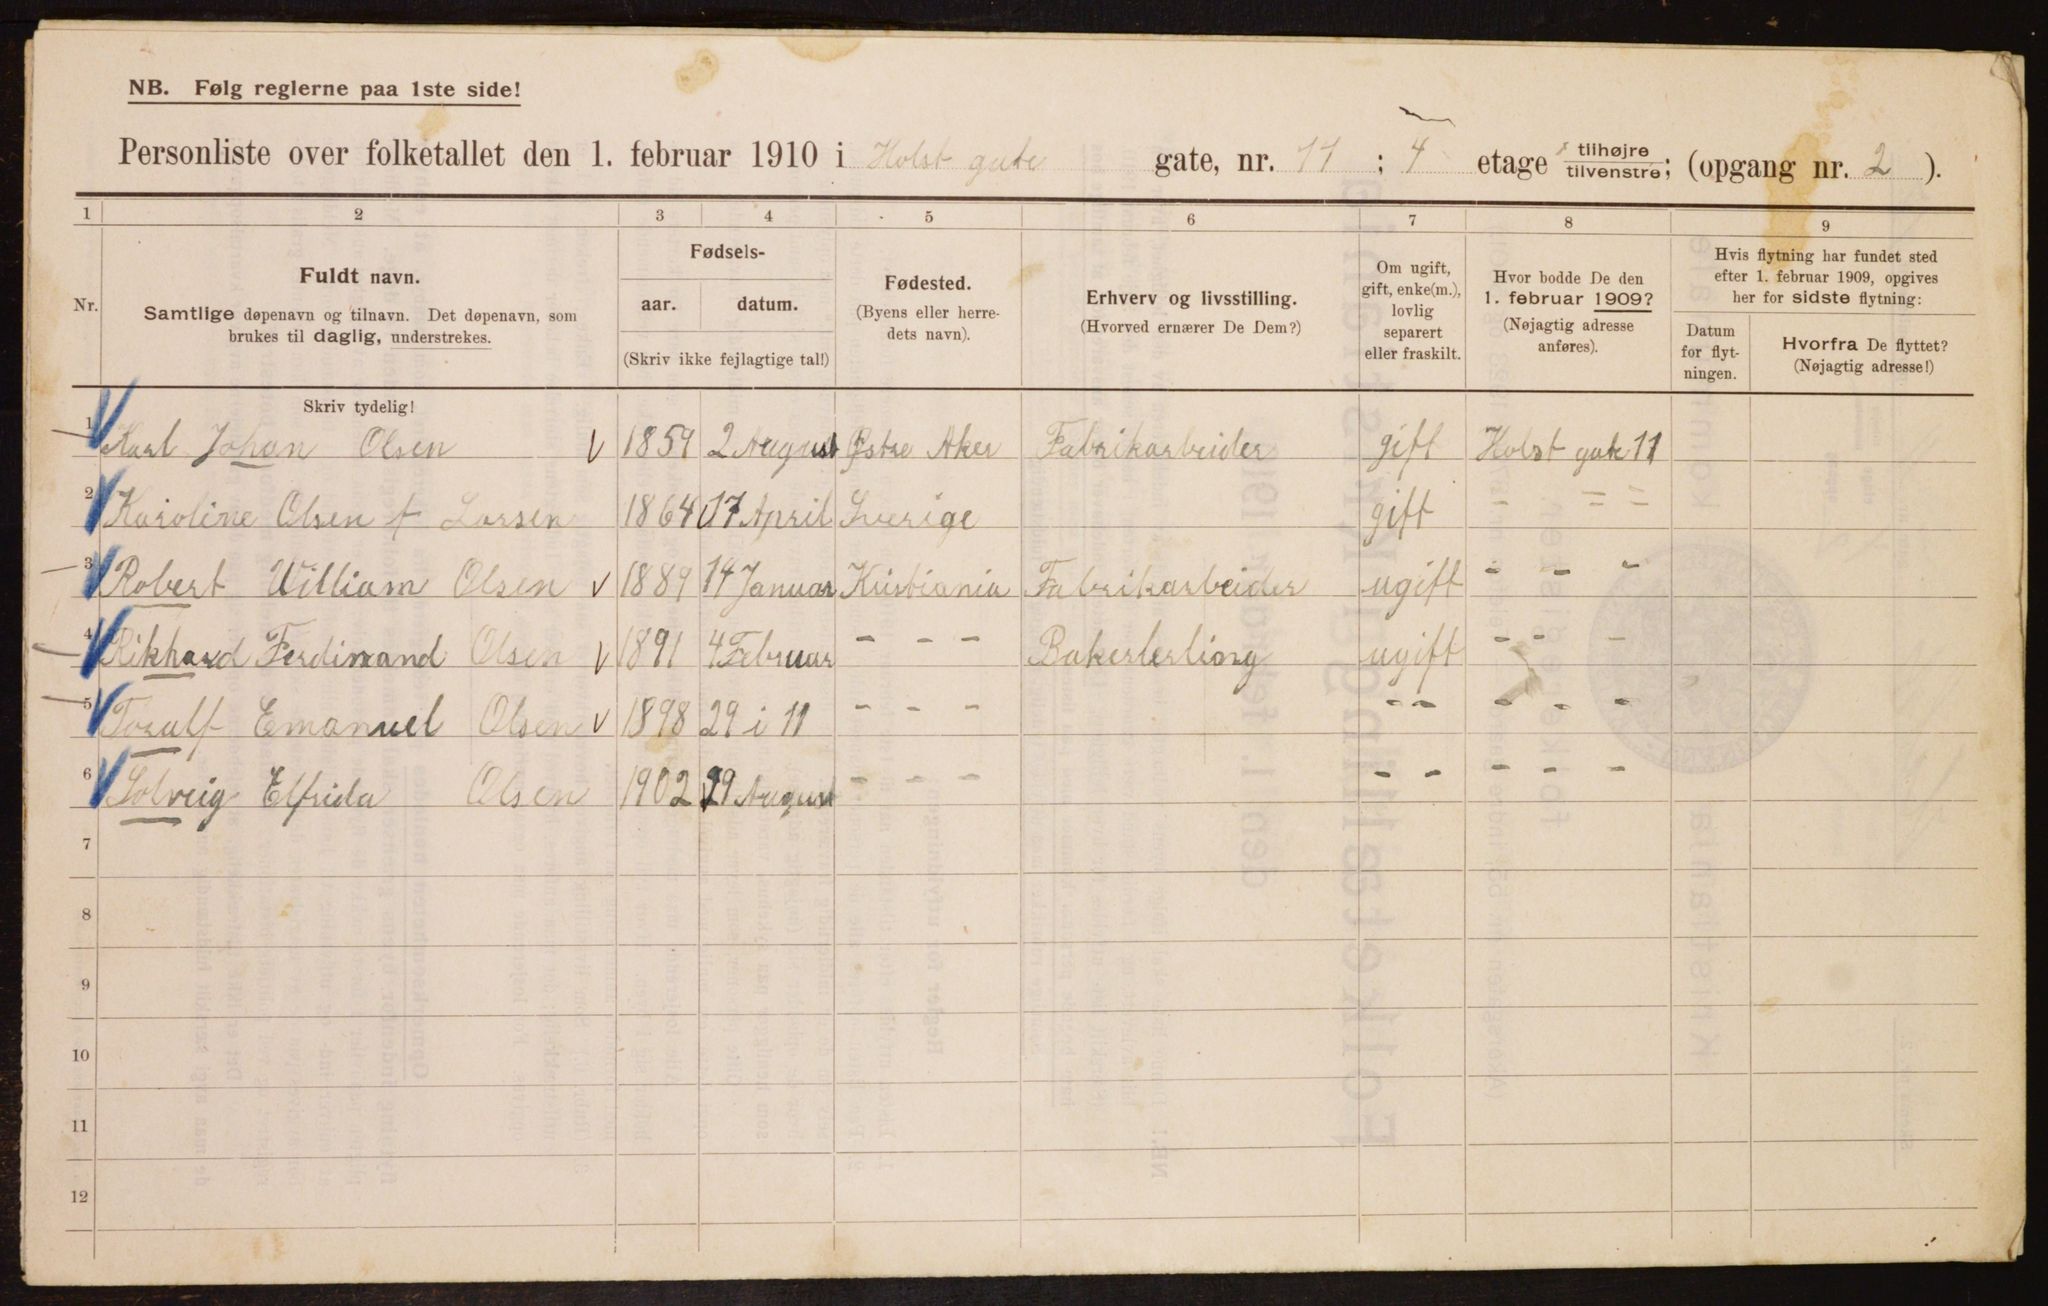 NB. Følg reglerne paa 1ste side!
Personliste over folketallet den 1. februar 1910 i Holst gate gate, nr. 11 ; 4 etage tilhøjre tilvenstre; (opgang nr. 2 ).
1 2 3 4 5 6 7 8 9
Nr.
Fuldt navn.
Samtlige døpenavn og tilnavn. Det døpenavn, som
brukes til daglig, understrekes.
Skriv tydelig!
Fødsels-
aar. datum.
(Skriv ikke fejlagtige tal!)
Fødested.
(Byens eller herre-
dets navn).
Erhverv og livsstilling.
(Hvorved ernærer De Dem?)
Om ugift,
gift, enke(m.),
lovlig
separert
eller fraskilt.
Hvor bodde De den
1. februar 1909?
(Nøjagtig adresse
anføres).
Hvis flytning har fundet sted
efter 1. februar 1909, opgives
her for sidste flytning:
Datum
for flyt-
ningen.
Hvorfra De flyttet?
(Nøjagtig adresse!)
1 Karl Johan Olsen 1859 2 August Østre Aker Fabrikarbeider gift Holst gate 11
2 Karoline Olsen f Larsen 1864 17 April Sverige gift - = =
3 Robert William Olsen 1889 14 Januar Kristiania Fabrikarbeider ugift - - -
4 Rikhard Ferdinand Olsen 1891 4 Februar - - - Bakerlerling ugift - - -
5 Toralf Emanuel Olsen 1898 29 i 11 - - - - - - - -
6 Solveig Elfrida Olsen 1902 29 August - - - - - - - -
7
8
9
10
11
12